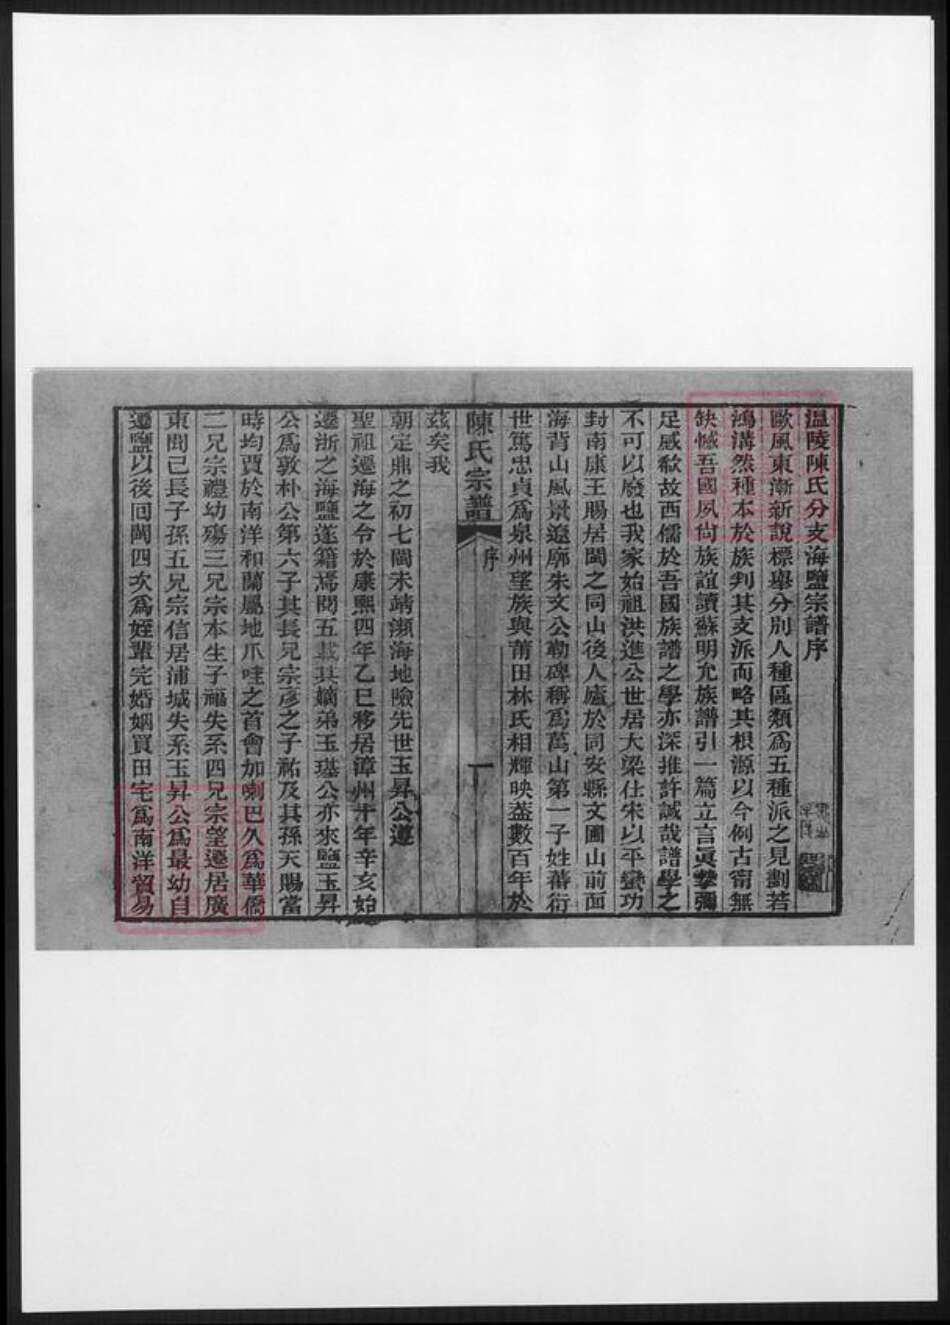 溫陵陳氏分支海鹽宗譜序
歐風東漸新說標舉分別人種區類爲五種派之見劃若
鴻溝然種本於族判其支派而略其根源以今例古甯無
缺憾吾國夙尙族誼讀蘇明允族譜引一篇立言眞摯彌
足感歎故西儒於吾國族譜之學亦深推許誠哉譜學之
不可以廢也我家始祖洪進公世居大梁仕宋以平蠻功
封南康王賜居閩之同山後人廬於同安縣文圃山前面
海背山風景遼廓朱文公勒碑稱爲萬山第一子姓蕃衍
世篤忠貞爲泉州望族與莆田林氏相輝映葢數百年於
陳氏宗譜
序
一
茲矣我
朝定鼎之初七閩未靖瀕海地險先世玉昇公遵
聖祖遷海之令於康熙四年乙巳移居漳州十年辛亥始
遷浙之海鹽遂籍焉閱五載其嫡弟玉璂公亦來鹽玉昇
公爲敦朴公第六子其長兄宗彥之子祐及其孫天賜當
時均賈於南洋和蘭屬地爪哇之首會加喇巴久爲華僑
二兄宗禮幼殤三兄宗本生子福失系四兄宗望遷居廣
東問己長子孫五兄宗信居浦城失系玉昇公爲最幼自
遷鹽以後回閩四次爲姪輩完婚姻買田宅爲南洋貿易